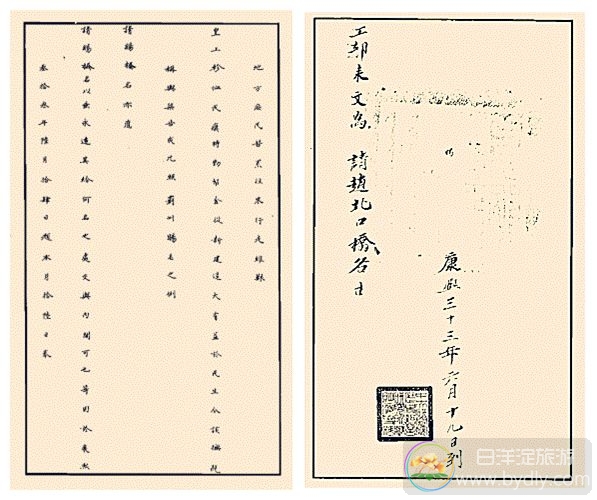 康熙三十三年六月十九日到
工部來文為 請趙北口橋名由
地方庶民 往來行走維艱
皇上軫恤民瘼時動帑金從新建造大有益於民生今該撫既
稱與 告成 照薊州賜名之例
請賜橋名亦應
請賜橋名以垂永遠其給何名之處交與內閣可也等因於康熙
叁拾叁年陸月拾肆日題本月拾陸日奉
白洋淀旅游
www.bydly.com